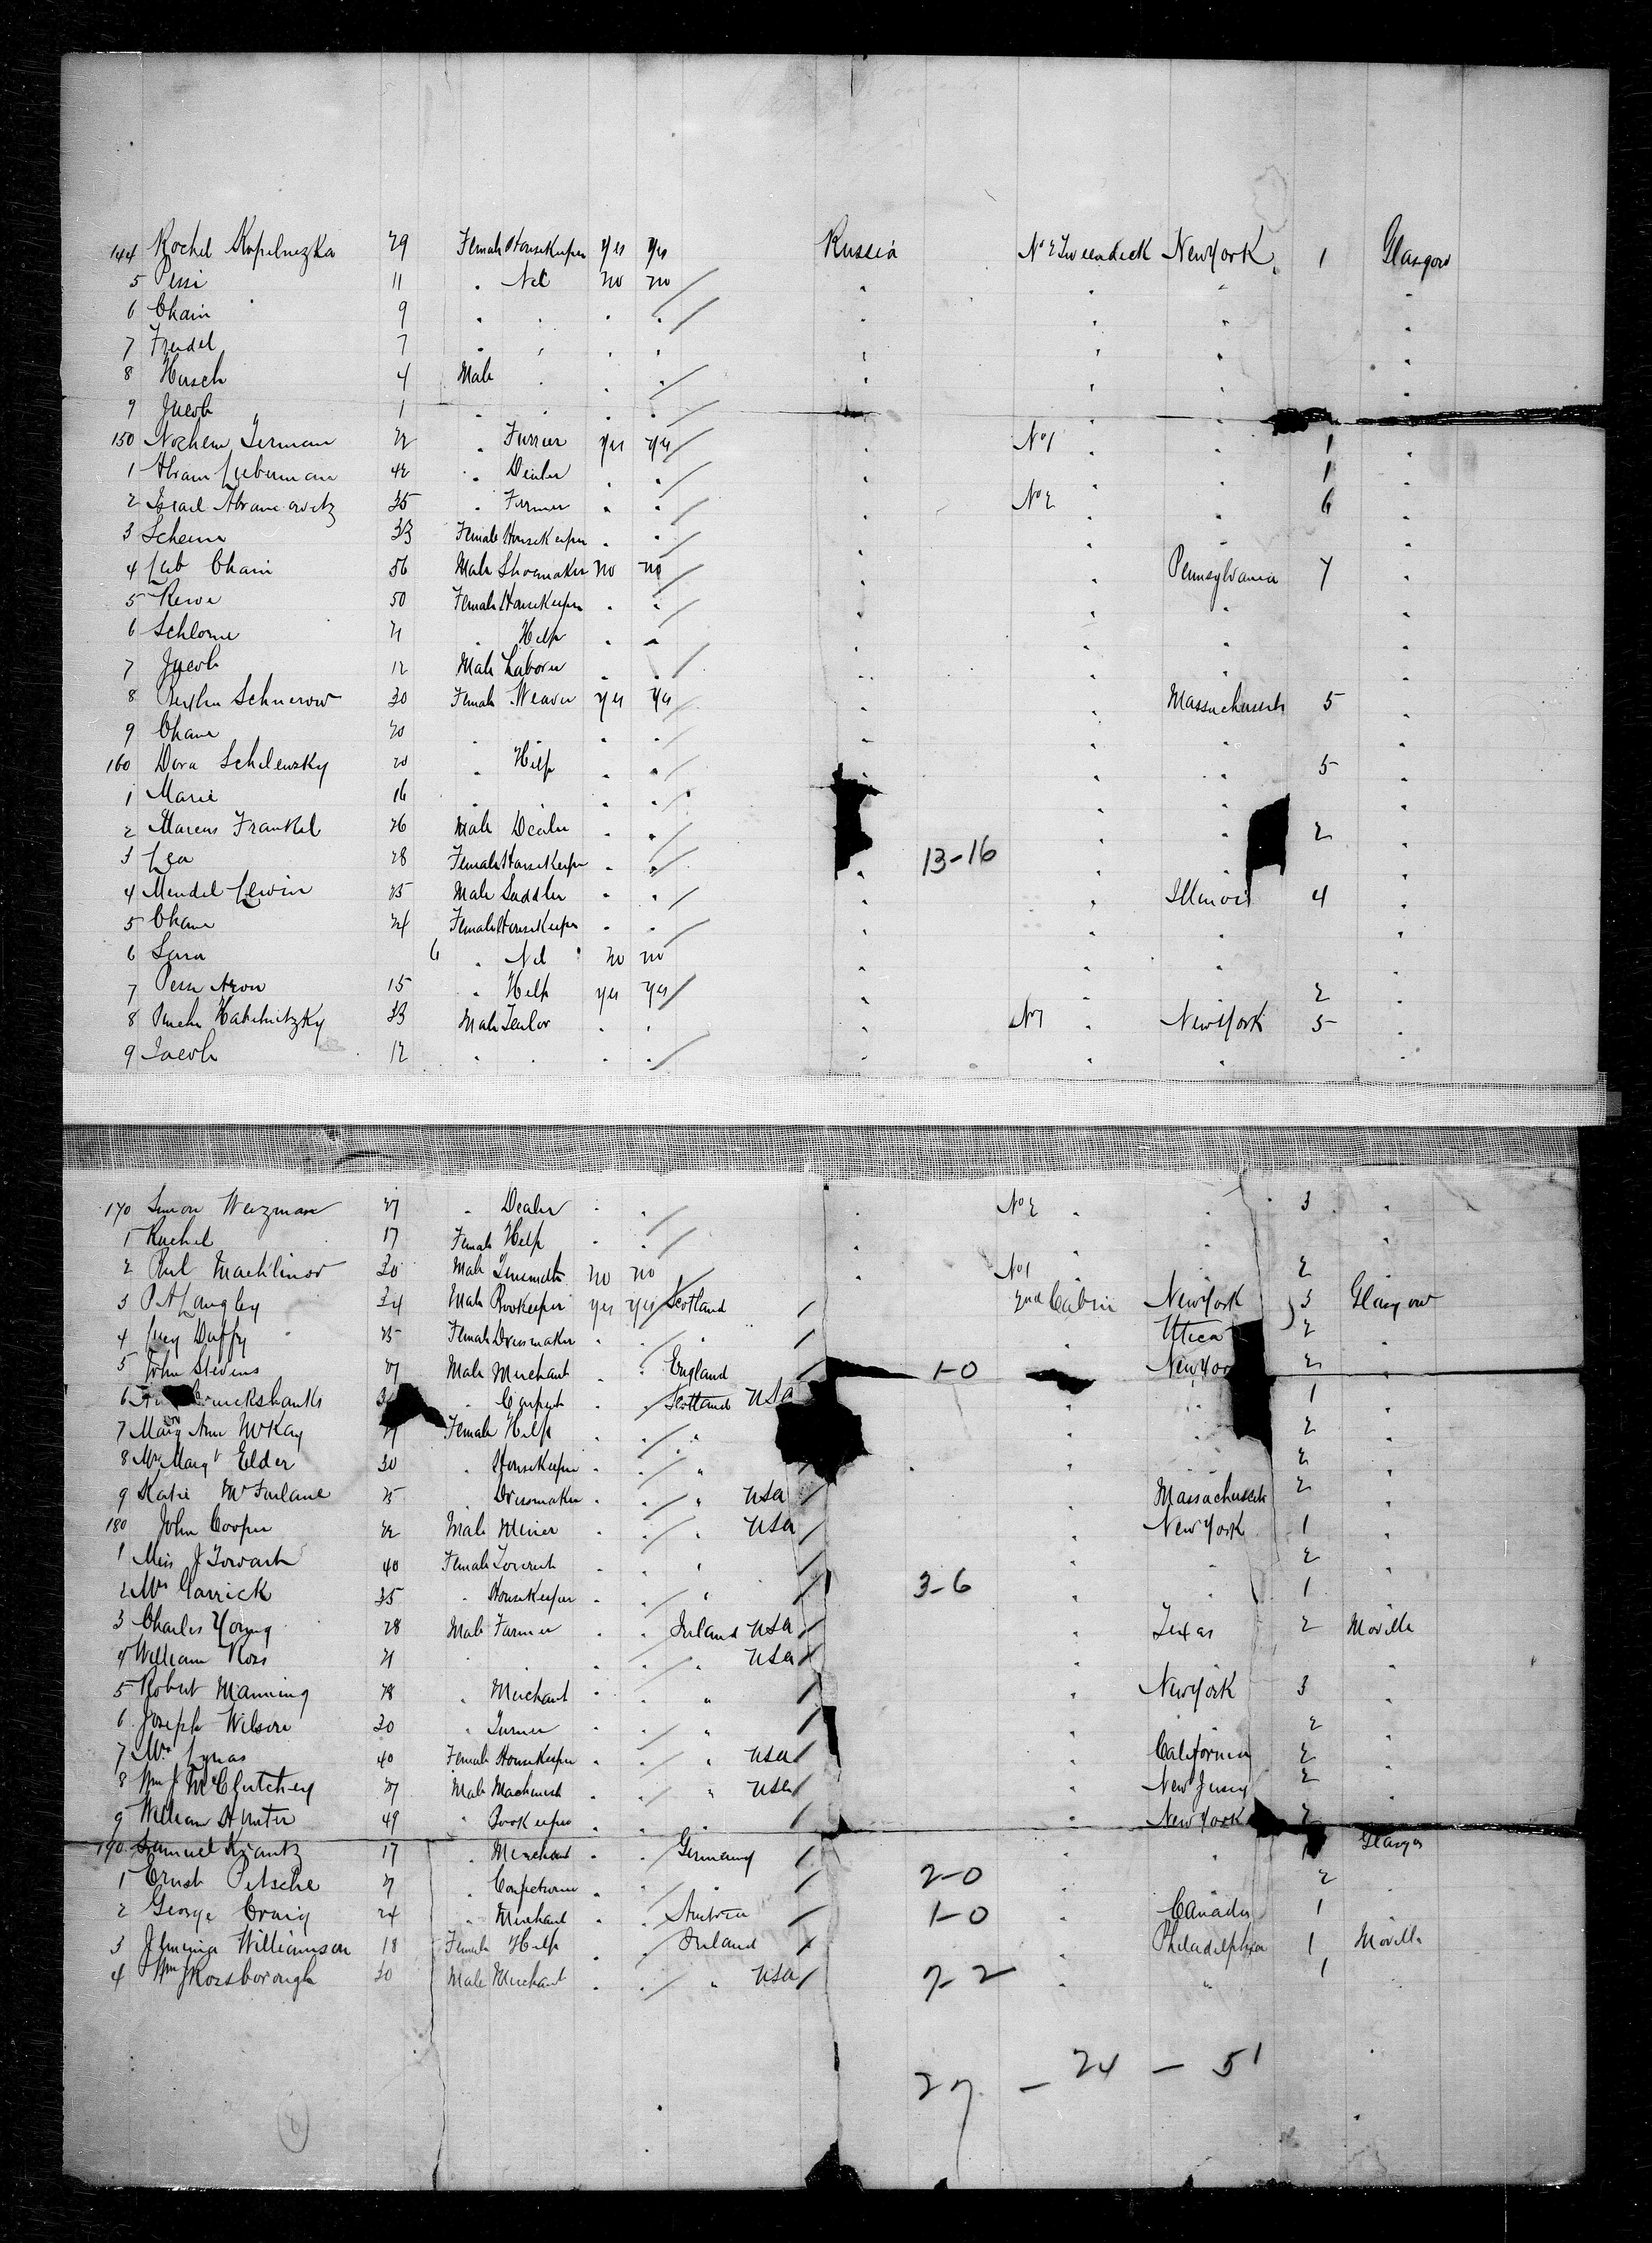 144 Rochel Kopelnezka 29 Female Housekeeper yes yes Russia No 2 Tweendeck New York 1 Glasgow
5 Pessi 11 " Nil no no / " " " "
6 Chain 9 " " " " / " " " "
7 Freidel 7 " " " " " " " "
8 Hirsch 4 Male " " " / " " " "
9 Jacob " 1 " " " " / " "
150 Nochem Terman 22 " Furrier yes yes / " No 1 " " 1 "
1 Abram Lieberman 42 " Dealer " " / " " " 1 "
2 Israel Abramowitz 35 " Farmer " " / " No 2 " " 6 "
3 Scheine 33 Female Housekeeper " " / " " " "
4 Leib Chain 56 Male Shoemaker no no / " " Pennsylvania 7 "
5 Rewe 50 Female Housekeeper " " / " " " "
6 Schlome 21 " Help " " " " " "
7 Jacob 12 Male Laborer " " / " " " "
8 Schnerow 30 Female Weaver yes yes / " " Massachusetts 5 "
9 Chane 20 " " " " / " " " "
160 Dora Schilewsky 20 " Help " " / " " " 5 "
1 Marie 16 " " " / " " "
2 Marcus Frankel 26 Male Dealer " " / " " 2 "
3 Lea 28 Female Housekeeper " " / " 13-16 " " "
4 Mendel Lewin 25 Male Saddler " " / " " Illinois 4 "
5 Chane 24 Female Housekeeper " " / " " " "
6 Sara 6 " Nil no no " " " "
7 Pesse Aron 15 " Help yes yes / " " 2 "
8 33 Male Tailor " " " No 1 " New York 5 "
9 Jacob 12 " " " " / " " " "
170 Simon Weizman 27 " Dealer " " / " No 2 " " 3 "
1 Rachel 17 Female Help " " / " " " "
2 30 Male Tinsmith no no / " No 1 " 2
3 P A Langley 34 Male Bookeeper yes yes / Scotland / 2nd Cabin New York 3 Glasgow
4 Lucy Duffy 25 Female Dressmaker " " " / " Utica 2 "
5 John Stevens 27 Male Merchant " " England / 1-0 New York 2 "
6 Cruickshanks " Carpenter " " / Scotland USA " " 1 "
7 Mary Ann McKay Female Help " " / " " " 2 "
8 Mrs Margt Elder 30 " Housekeeper " " / " " " 2 "
9 Katie McFarlane 25 " Dressmaker " " / " USA / " Massachusetts 2 "
180 John Cooper 22 Male Miner " " / " USA / " New York 1 "
1 Miss J Towart 40 Female Tourist " " / " / " 2 "
2 Mrs Garrick 35 " Housekeeper " " / " / 3-6 " " 1 "
3 Charles Young 28 Male Farmer " " Ireland USA / " Texas 2 Moville
4 William Ross 21 " " " " / " USA / " " "
5 Robert Manning 28 " Merchant " " / " / " New York 3 "
6 Joseph Wilson 30 " Turner " " / " / 2 "
7 Mrs Lynas 40 Female Housekeeper " " / " USA / " California 2 "
8 Wm J McClutchey 27 Male Machinist " " / " USA / " New Jersey 2 "
9 William Hunter 49 " Bookeeper " " / " / " New York 2
190 Samuel Krantz 17 " Merchant " " / Germany / " " Glasgow
1 Ernst Petsche 27 " Confectioner " " / " / 2-0 " 2 "
2 George Craig 24 " Merchant " " / Austria / 1-0 " Canada 1 "
3 Jemima Williamson 18 Female Help " " / Ireland / Philadelphia 1 Moville
4 Wm J Rossborough 30 Male Merchant " " / " USA / 7-2 " " 1 "
27 - 24 - 51